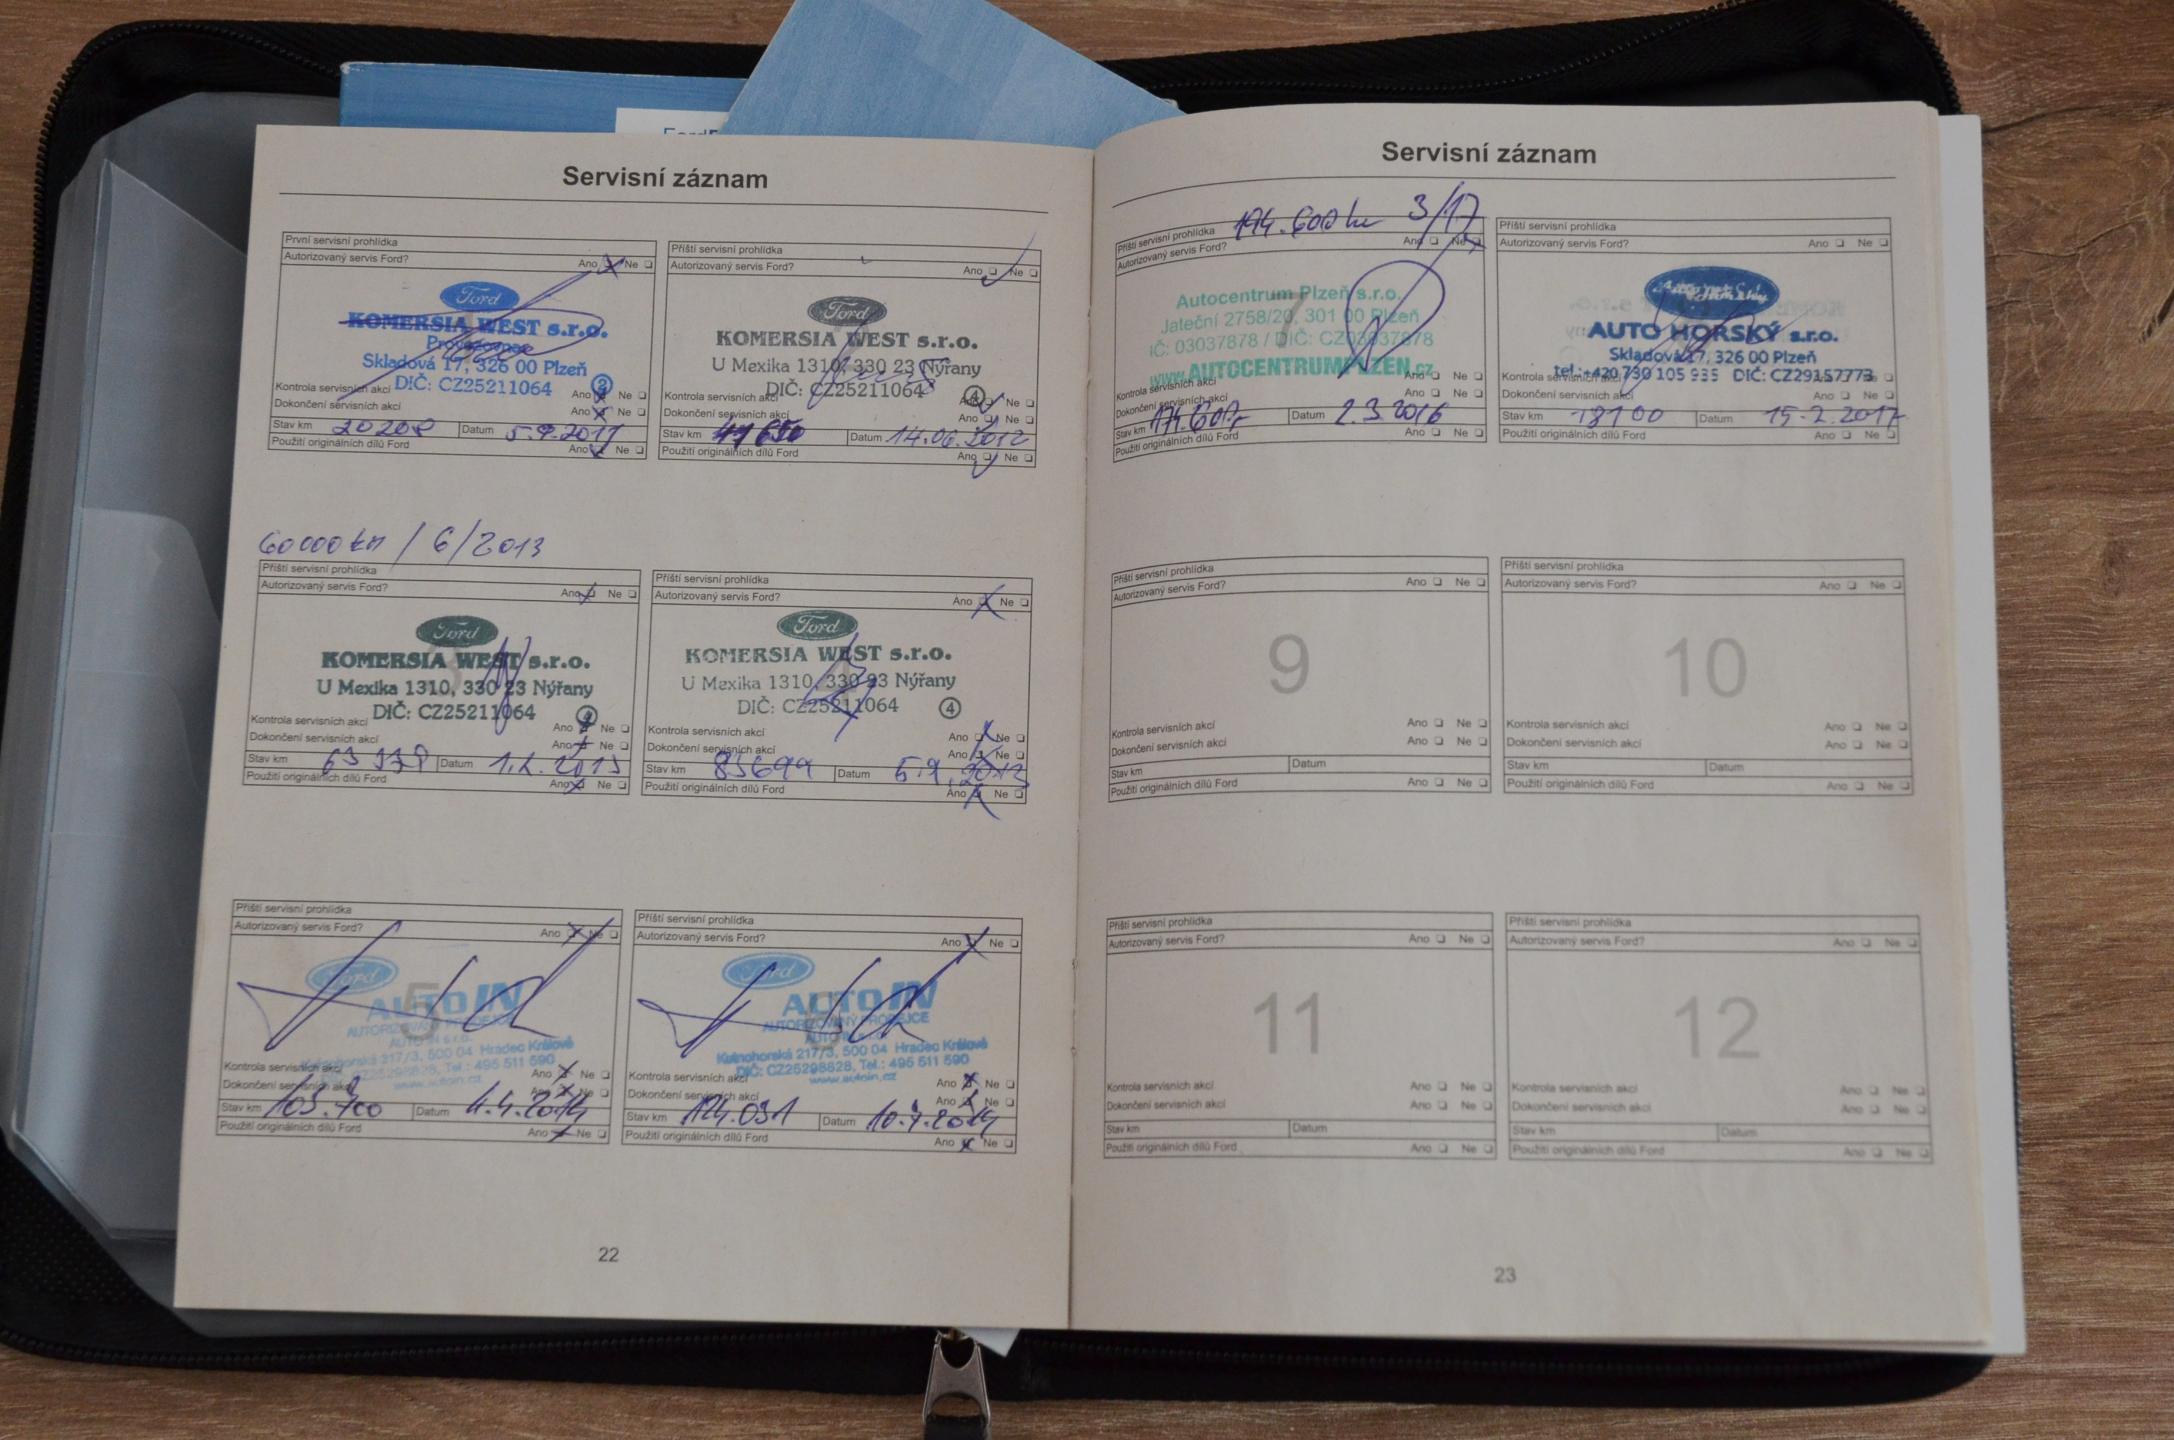 Servisní záznam
První servisní prohlídka
Autorizovaný servis Ford?
Ano Ne
Ford
KOMERSIA WEST s.r.o.
Provozovna
Skladová 17, 326 00 Plzeň
DIČ: CZ25211064 2
Kontrola servisních akcí
Ano Ne
Dokončení servisních akcí
Ano Ne
Stav km 20208 Datum 5.9.2011
Použití originálních dílů Ford
Ano Ne
Příští servisní prohlídka
Autorizovaný servis Ford?
Ano Ne
Ford
KOMERSIA WEST s.r.o.
U Mexika 1310, 330 23 Nýřany
DIČ: CZ25211064 4
Kontrola servisních akcí
Ano Ne
Dokončení servisních akcí
Ano Ne
Stav km Datum 14.06.2012
Použití originálních dílů Ford
Ano Ne
60000 km / 6/2013
Příští servisní prohlídka
Autorizovaný servis Ford?
Ano Ne
Ford
3
KOMERSIA WEST s.r.o.
U Mexika 1310, 330 23 Nýřany
DIČ: CZ25211064
Kontrola servisních akcí
Ano Ne
Dokončení servisních akcí
Ano Ne
Stav km Datum
Použití originálních dílů Ford
Ano Ne
Příští servisní prohlídka
Autorizovaný servis Ford?
Ano Ne
Ford
4
KOMERSIA WEST s.r.o.
U Mexika 1310, 330 23 Nýřany
DIČ: CZ25211064 4
Kontrola servisních akcí
Ano Ne
Dokončení servisních akcí
Ano Ne
Stav km 83699 Datum
Použití originálních dílů Ford
Ano Ne
Příští servisní prohlídka
Autorizovaný servis Ford?
Ano Ne
Ford
5
AUTO IN
AUTORIZOVANÝ PRODEJCE
AUTO IN s.r.o.
217/3, 500 04 Hradec Králové
CZ25298828, Tel.: 495 511 590
www.autoin.cz
Kontrola servisních akcí
Ano Ne
Dokončení servisních akcí
Ano Ne
Stav km 103.700 Datum
Použití originálních dílů Ford
Ano Ne
Příští servisní prohlídka
Autorizovaný servis Ford?
Ano Ne
Ford
AUTO IN
AUTORIZOVANÝ PRODEJCE
217/3, 500 04 Hradec Králové
DIČ: CZ25298828, Tel.: 495 511 590
www.autoin.cz
Kontrola servisních akcí
Ano Ne
Dokončení servisních akcí
Ano Ne
Stav km 124.031 Datum 10.7.2014
Použití originálních dílů Ford
Ano Ne
22
Servisní záznam
Příští servisní prohlídka 194.600 km 3/17
Autorizovaný servis Ford?
Ano Ne
7
Autocentrum Plzeň s.r.o.
Jateční 2758/20, 301 00 Plzeň
IČ: 03037878 / DIČ: CZ03037878
www.AUTOCENTRUMPLZEN.cz
Kontrola servisních akcí
Ano Ne
Dokončení servisních akcí
Ano Ne
Stav km Datum 2.3.2016
Použití originálních dílů Ford
Ano Ne
Příští servisní prohlídka
Autorizovaný servis Ford?
Ano Ne
AUTO HORSKÝ s.r.o.
Skladová 17, 326 00 Plzeň
tel.: +420 730 105 935 DIČ: CZ29157773
Kontrola servisních akcí
Ne
Dokončení servisních akcí
Ano Ne
Stav km Datum 15.2.2017
Použití originálních dílů Ford
Ano Ne
Příští servisní prohlídka
Autorizovaný servis Ford?
Ano Ne
9
Kontrola servisních akcí
Ano Ne
Dokončení servisních akcí
Ano Ne
Stav km Datum
Použití originálních dílů Ford
Ano Ne
Příští servisní prohlídka
Autorizovaný servis Ford?
Ano Ne
10
Kontrola servisních akcí
Ano Ne
Dokončení servisních akcí
Ano Ne
Stav km Datum
Použití originálních dílů Ford
Ano Ne
Příští servisní prohlídka
Autorizovaný servis Ford?
Ano Ne
11
Kontrola servisních akcí
Ano Ne
Dokončení servisních akcí
Ano Ne
Stav km Datum
Použití originálních dílů Ford
Ano Ne
Příští servisní prohlídka
Autorizovaný servis Ford?
Ano Ne
12
Kontrola servisních akcí
Ano Ne
Dokončení servisních akcí
Ano Ne
Stav km Datum
Použití originálních dílů Ford
Ano Ne
23